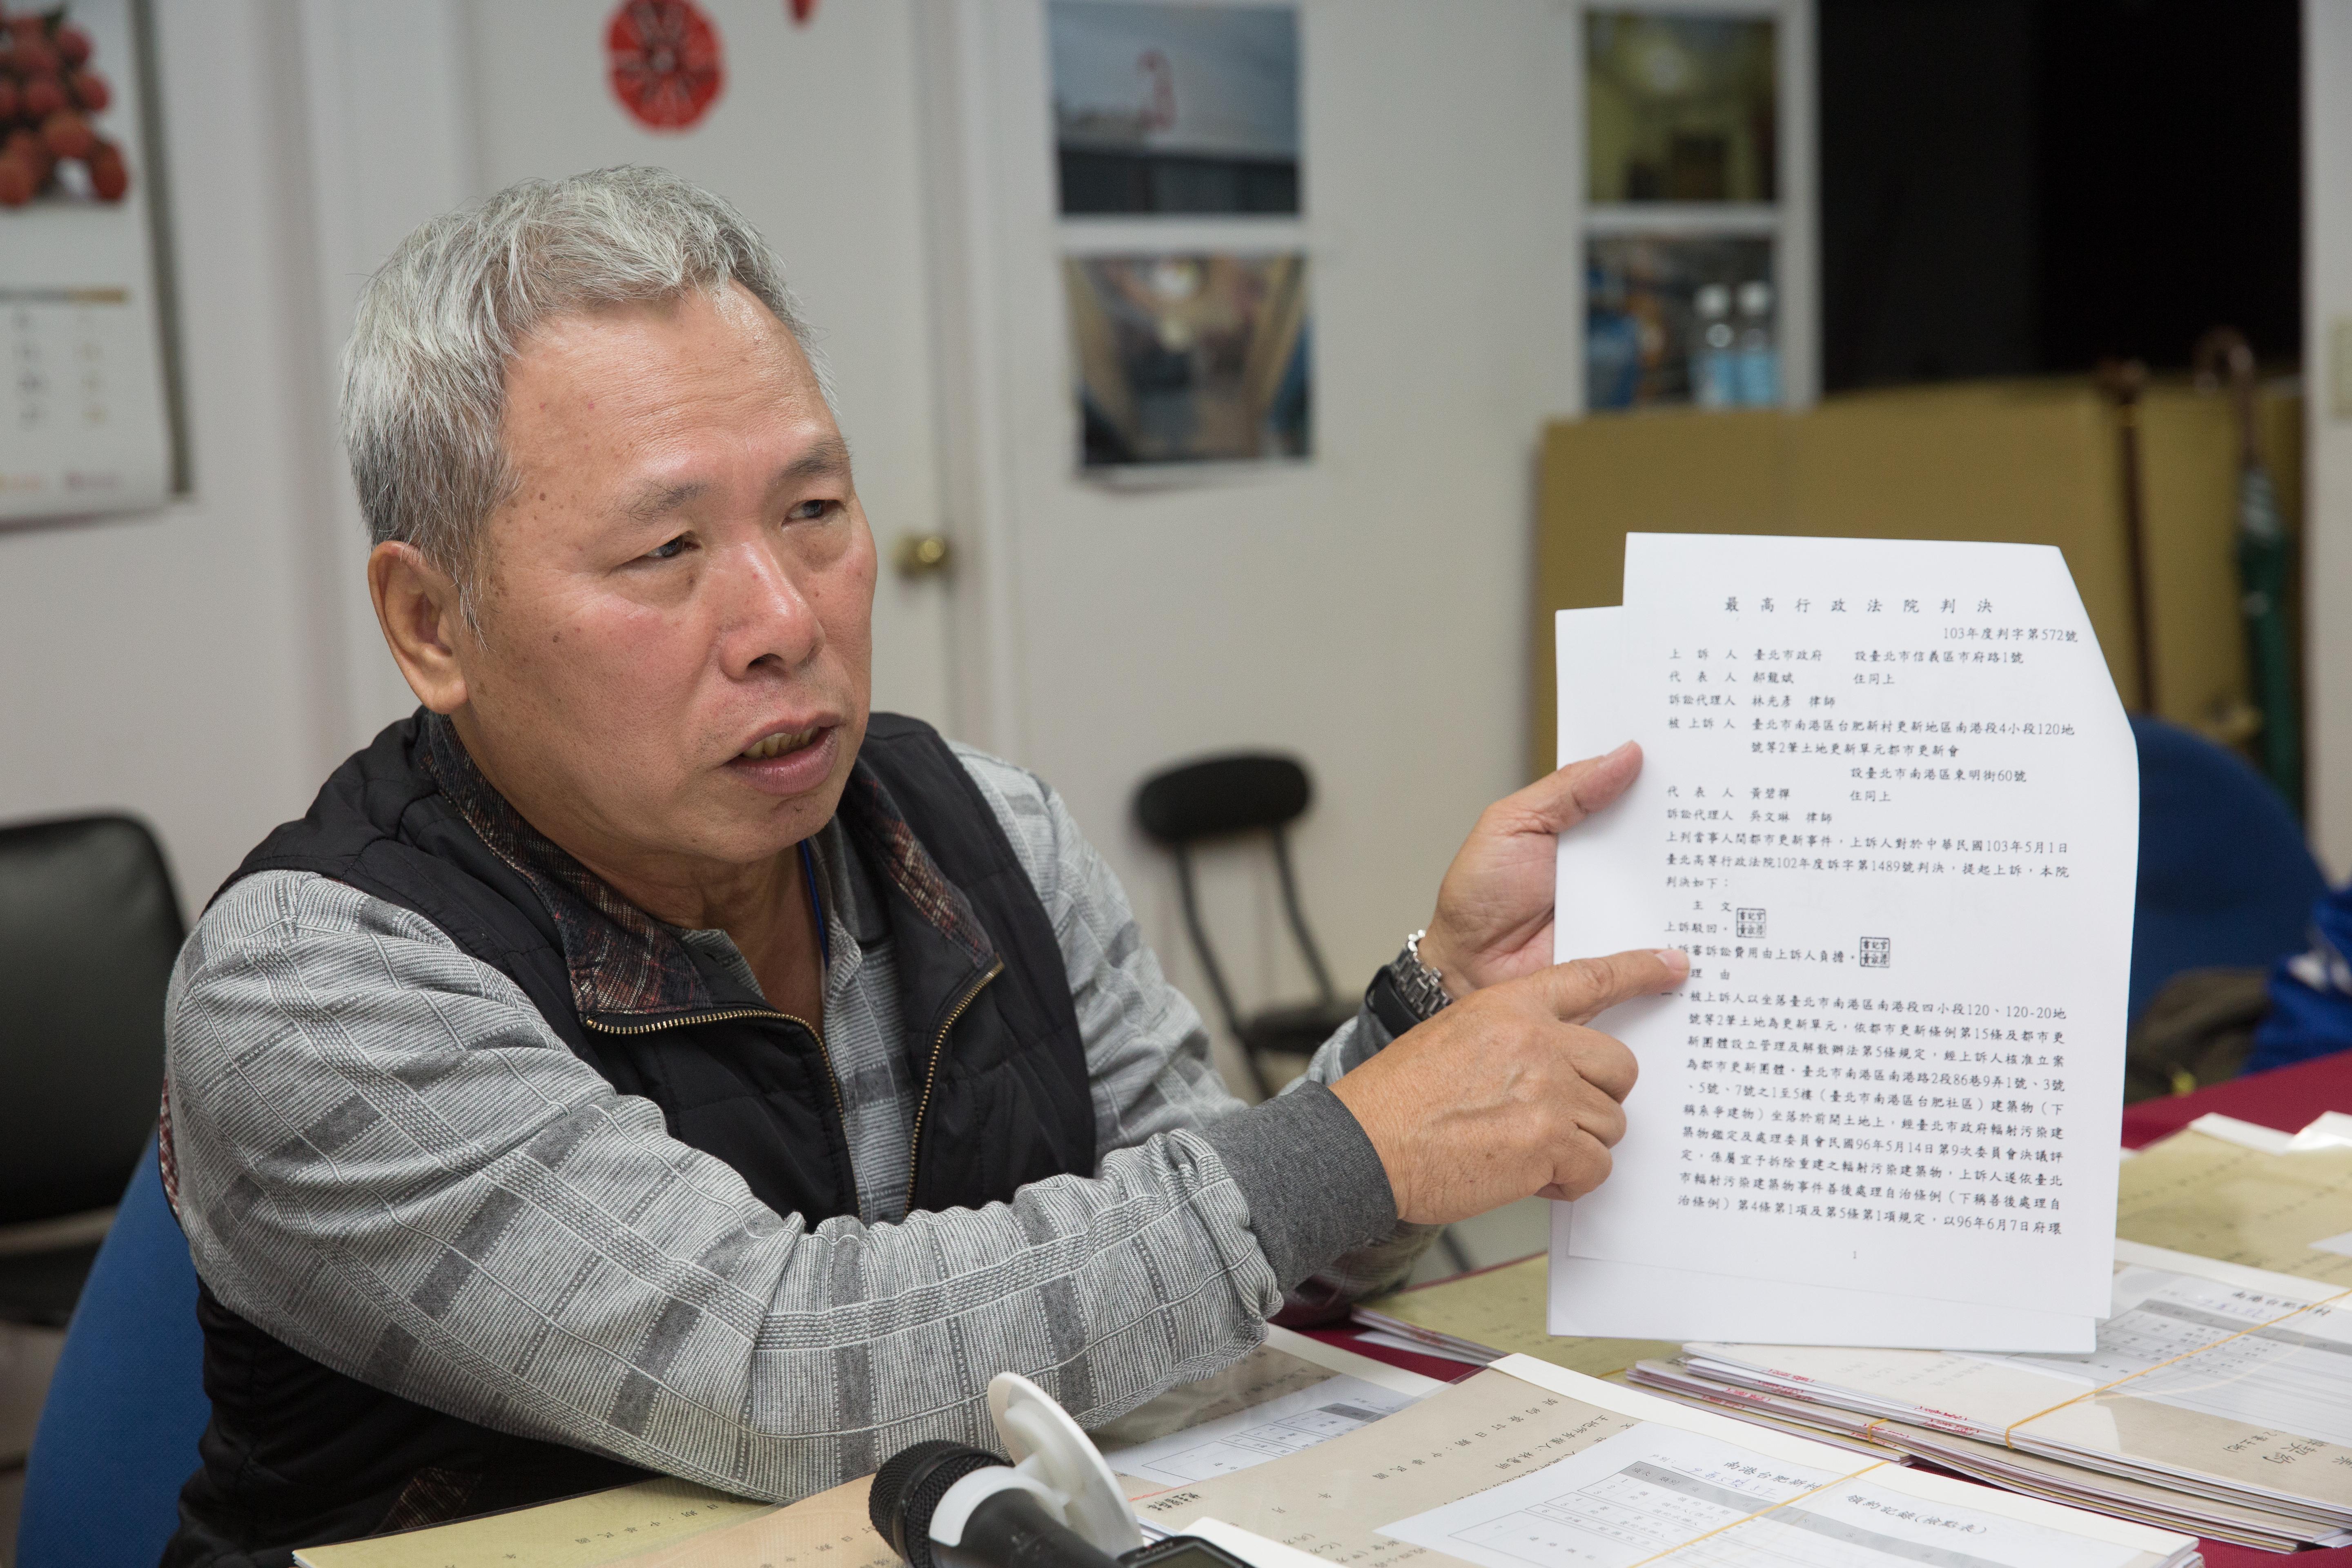 最高行政法院判決
103年度判字第572號
上訴人 臺北市政府 設臺北市信義區市府路1號
代表人 郝龍斌 住同上
訴訟代理人 林光彥 律師
被上訴人 臺北市南港區台肥新村更新地區南港段4小段120地
號等2筆土地更新單元都市更新會
設臺北市南港區東明街60號
代表人 黃碧禪 住同上
訴訟代理人 吳文琳 律師
上列當事人間都市更新事件,上訴人對於中華民國103年5月1日
臺北高等行政法院102年度訴字第1489號判決,提起上訴,本院
判決如下:
主文
上訴駁回。
上訴審訴訟費用由上訴人負擔。
理由
一、被上訴人以坐落臺北市南港區南港段四小段120、120-20地
號等2筆土地為更新單元,依都市更新條例第15條及都市更
新團體設立管理及解散辦法第5條規定,經上訴人核准立案
為都市更新團體。臺北市南港區南港路2段86巷9弄1號、3號
、5號、7號之1至5樓(臺北市南港區台肥社區)建築物(下
稱系爭建物)坐落於前開土地上,經臺北市政府輻射污染建
築物鑑定及處理委員會民國96年5月14日第9次委員會決議評
定,係屬宜予拆除重建之輻射污染建築物,上訴人遂依臺北
市輻射污染建築物事件善後處理自治條例(下稱善後處理自
治條例)第4條第1項及第5條第1項規定,以96年6月7日府環
1
南港台肥新村
南港台肥新村
領約記錄(檢點表)
契約